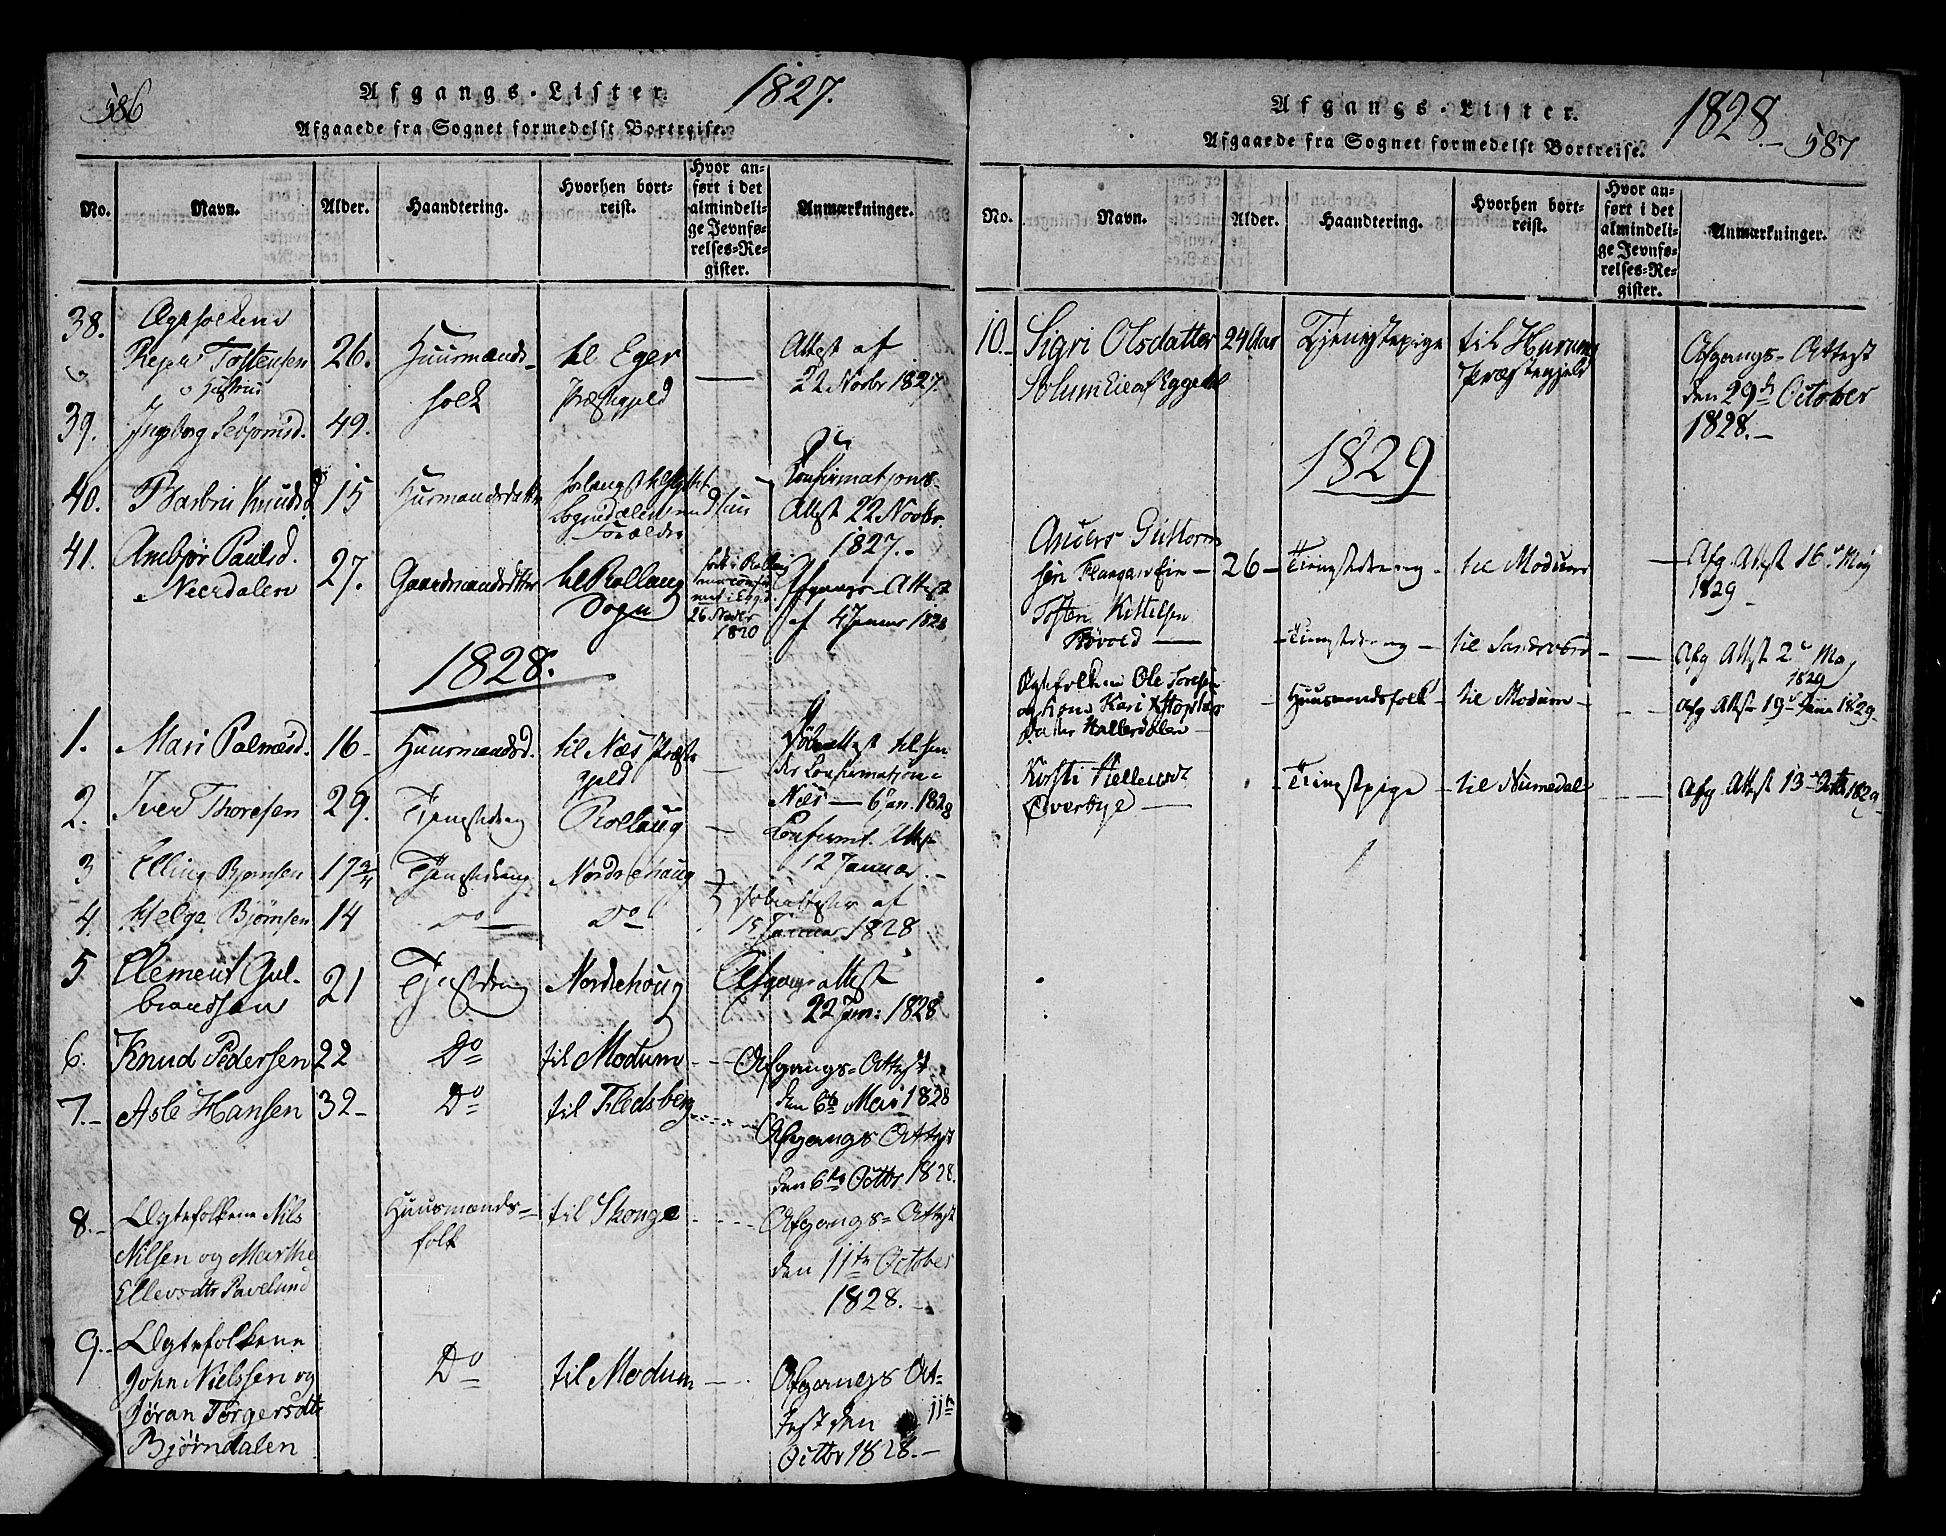 586
Afgangs-Lister
1827.
Afgaaede fra Sognet formedelst Bortreise.
No.
Navn.
Alder.
Haandtering.
Hvorhen bort-
reist.
Hvor an-
ført i det
almindeli-
ge Jevnfø-
relses-Re-
gister.
Anmærkninger.
38.
Tostensen
26.
Huusmands-
folk
til Eger
Præstegjeld
Attest af
22 Novbr 1827.
39.
Ingborg
49.
40.
Barbro Knudsd
15
Huusmandsdatter
Forældre
Confirmations-
Attest 22 Novbr.
1827.-
41.
Ambjør Paulsd.
Neerdalen
27.
Gaardmandsdtter
til Rollaug
Sogn
26 Novbr
1820
Afgangs-Attest
af 4 Januar 1828
1828.
1.
Mari Palmesd.
16-
Huusmandsd.
til Næs Præste
gjeld
Næs - 6 Jan. 1828
2.
Iver Thoresen
29.
Tjenestedreng
Rollaug
Confirmt. Attest
12 Januar.-
3
Elling Bjørnsen
17 3/4
Tjenestedreng
Nordrehaug
4.
Helge Bjørnsen
14
Do
Do
af
15 Januar 1828
5
Clement Gul-
brandsen
21
Tjenstdreng
Nordrehoug
Afgangs attest
22 Jan: 1828
6.
Knud Pedersen
22
Do
til Modum
Afgangs-Attest
den 6te Mai 1828
7.-
Asle Hansen
32-
Do
til Fledsberg
Afgangs Attest
den 6te Octbr 1828.
8.-
Ægtefolkene Nils
Nilsen og Marthe
Ellevsdtr Pavelund
Huusmands-
folk
til Skouge
Afgangs-Attest
den 11te October
1828.-
9.-
Ægtefolkene
John Nielssen og
Jøran Torgersdtr
Bjørndalen
Do
til Modum
Afgangs At-
test den 11te
Octbr 1828.-
Afgangs-Lister.
1828.-
587
Afgaaede fra Sognet formedelst Bortreise.
No.
Navn.
Alder.
Haandtering.
Hvorhen bort-
reist.
Hvor an-
ført i det
almindeli-
ge Jevnfø-
relses-Re-
gister.
Anmærkninger.
10.-
Sigri Olsdatter
24 Aar
Tjenestepige
til Hurum
Præstegjeld
Afgangs-Attest
den 29de October
1828.-
1829
Anders Guttorm
sen
26-
Tienestedreng
til Modum
Afg. Attest 16de Maj
1829-
Tosten Kittilsen
Tienestedreng
til Sandsværd
Afg Attest 2de Maj
1829
Ægtefolkene Ole Toresen
og Kone Kari
datter Hallersdalen
Huusmandsfolk
til Modum
Afg Attest 19de Juni 1829-
Kirsti
Øverbye
Tienestpige
til Numedal
Afg Attest 13de Octb 1829-